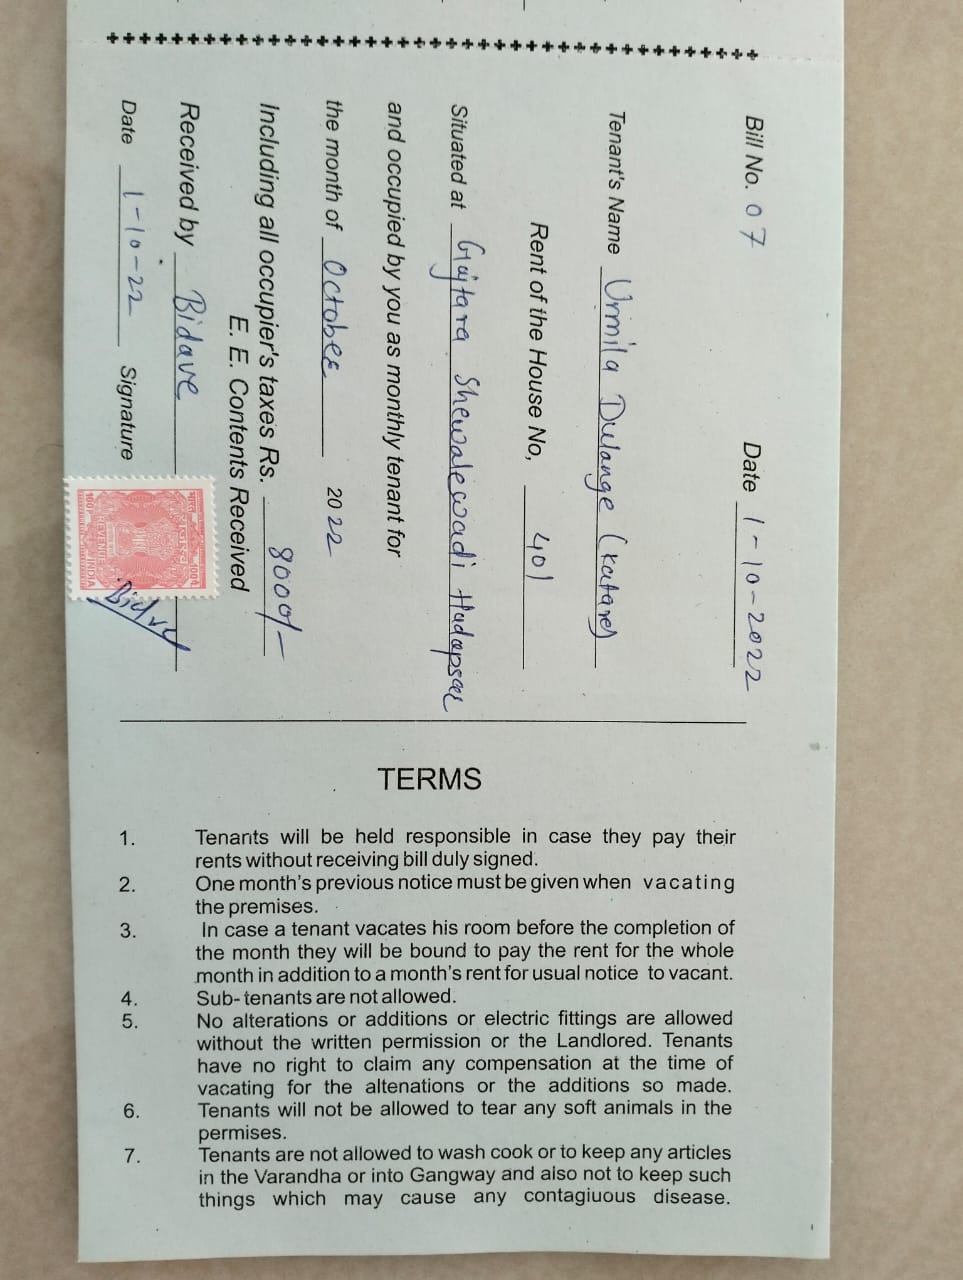 Bill No. 07 Date 1-10-2022
Tenant's Name Urmila Dulange (Katare)
Rent of the House No, 401
Situated at Gajtara Shewalewadi Hadapsar
and occupied by you as monthly tenant for
the month of October 2022
Including all occupier's taxes Rs. 8000/-
E. E. Contents Received
Received by Bidave
Date 1-10-22 Signature
REVENUE
INDIA
TERMS
1. Tenants will be held responsible in case they pay their
rents without receiving bill duly signed.
2. One month's previous notice must be given when vacating
the premises.
3. In case a tenant vacates his room before the completion of
the month they will be bound to pay the rent for the whole
month in addition to a month's rent for usual notice to vacant.
4. Sub- tenants are not allowed.
5. No alterations or additions or electric fittings are allowed
without the written permission or the Landlored. Tenants
have no right to claim any compensation at the time of
vacating for the altenations or the additions so made.
6. Tenants will not be allowed to tear any soft animals in the
permises.
7. Tenants are not allowed to wash cook or to keep any articles
in the Varandha or into Gangway and also not to keep such
things which may cause any contagiuous disease.